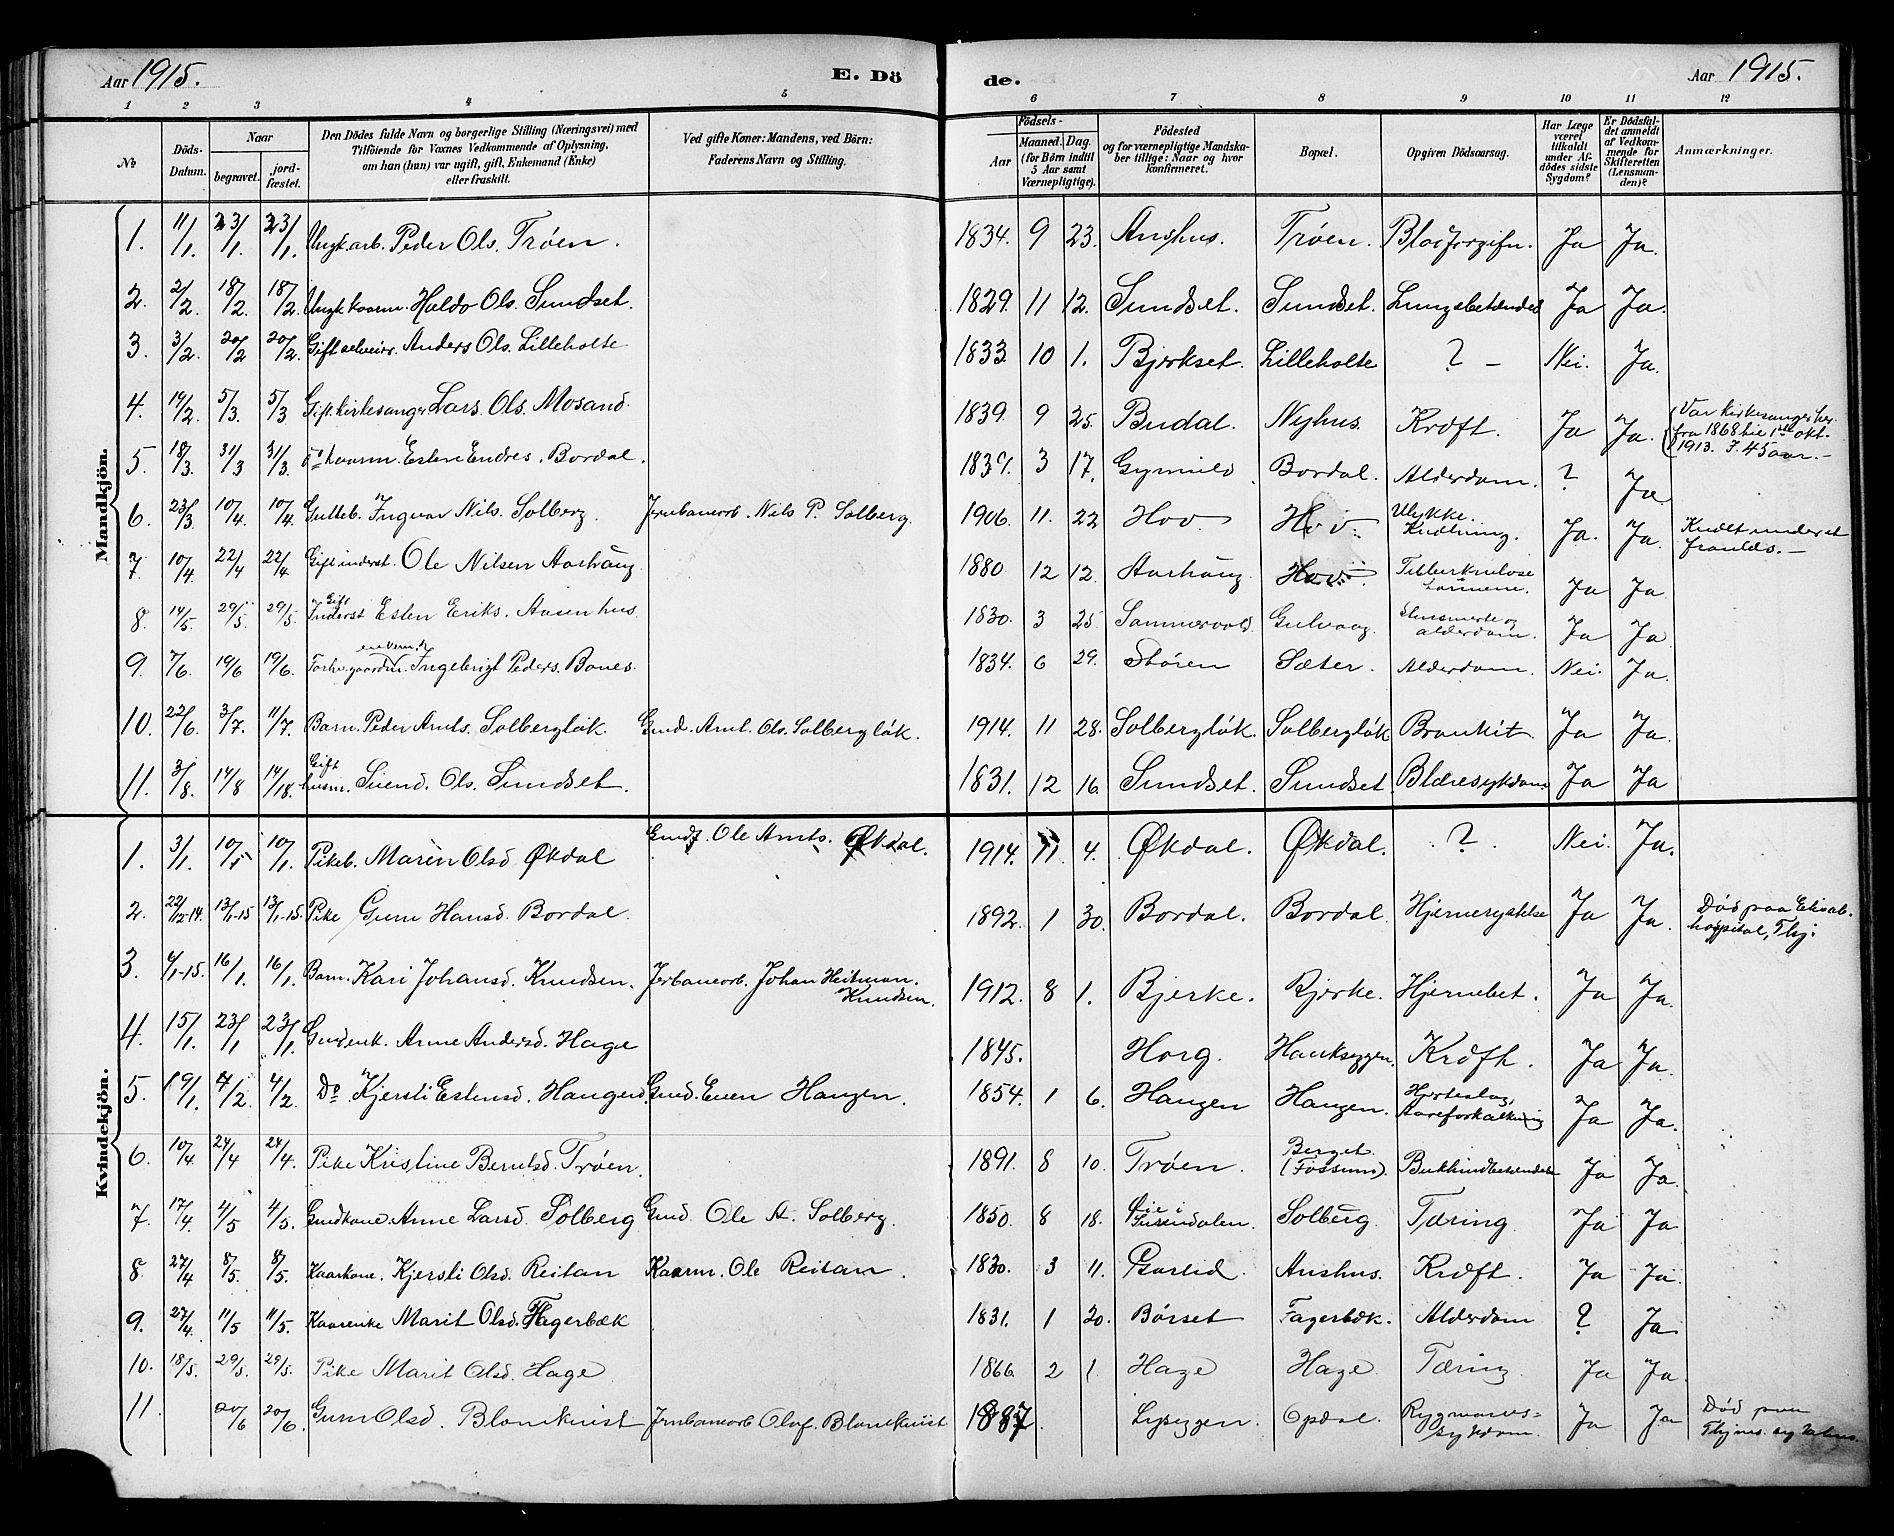 Aar 1915. E. Dö de. Aar 1915.
1 2 3 4 5 6 7 8 9 10 11 12
No Döds-Datum. Naar begravet. jord-fæstet. Den Dödes fulde Navn og borgerlige Stilling (Næringsvei) med Tilföiende for Voxnes Vedkommende af Oplysning, om han (hun) var ugift, gift, Enkemand (Enke) eller fraskilt. Ved gifte Koner: Mandens, ved Börn: Faderens Navn og Stilling. Födsels- Aar Maaned. Dag. (for Börn indtil 5 Aar samt Værnepligtige). Födested og for værnepligtige Mandska-ber tillige: Naar og hvor konfirmeret. Bopæl. Opgiven Dödsaarsag. Har Læge været tilkaldt under Af-dödes sidste Sygdom? Er Dödsfal-det anmeldt af Vedkom-mende for Skifteretten (Lensman-den)? Anmærkninger.
Mandkjön.
1. 11/1 23/1 23/1 Ungk.arb. Peder Ols. Tröen. 1834. 9 23. Anshus. Tröen. Blodforgifn. Ja Ja.
2. 2/2. 18/2 18/2. Ungk.kaarm. Haldo Ols. Sundset. 1829. 11 12. Sundset. Sundset. Lungebetændes Ja Ja.
3. 3/2. 20/2 20/2. Gift selveier. Anders Ols. Lilleholte 1833 10 1. Bjerkset. Lilleholte ? – Nei. Ja.
4. 19/2. 5/3. 5/3 Gift kirkesanger Lars Ols. Mosand. 1839. 9 25. Budal. Nyhus. Kræft. Ja Ja. (Var kirkesanger her fra 1868 til 1ste okt. 1913. I 45 aar. –
5. 18/3. 31/3 31/3. do kaarm. Esten Endres. Bordal. 1839. 3 17. Gynnild Bordal. Alderdom. ? Ja
6. 23/3. 10/4. 10/4. Gutteb. Ingvar Nils. Solberg. Jernbanearb. Nils P. Solberg. 1906. 11. 22 Hov Hov. Ulykke. Kvælning. Ja. Ja. Kvalt under et
7. 10/4. 22/4 22/4. Gift inderst. Ole Nilsen Aarhaug 1880 12 12. Aarhaug Hov. Tubberkulose Ja Ja.
8. 14/5. 29/5. 29/5. Gift Inderst Esten Eriks. Aasenhus 1830. 3 25. Sammervold Gulvaag. alderdom. Ja Ja
9. 7/6. 19/6 19/6. Ingebrigt Peders. Bones. 1834. 6 29. Stören Sæter. Alderdom. Nei. Ja.
10. 22/6. 3/7. 11/7. Barn. Peder Arnts. Solbergløk Gmd. Arnt. Ols. Solbergløk. 1914. 11 28. Solbergløk. Solbergløk Bronkit. Ja Ja.
11. 3/8. 14/8 14/18. Gift husm. Svend. Ols. Sundset. 1831. 12 16. Sundset. Sundset. Blæresykdom Ja Ja
Kvindekjön.
1. 3/1. 10/5 10/1. Pikeb. Maren Olsd Økdal Gmd. Ole Arnts. Økdal. 1914. 11. 4. Økdal. Økdal. ? Nei. Ja.
2. 22/12-14. 13/1-15 13/1-15. Pike Guru Hansd. Bordal. 1892. 1 30. Bordal. Bordal. Hjernerystelse Ja Ja. Død paa Elisab. hospital, Thj:
3. 6/1-15. 16/1 16/1. Barn. Kari Johansd. Knudsen. Jerbanearb. Johan Heitman. Knudsen. 1912. 8 1. Bjerke. Bjerke. Hjernebet. Ja Ja.
4. 15/1. 23/1 23/1. Gmdenk. Anne Andersd. Hage 1845. Horg. Haukseggen. Kræft. Ja Ja.
5. 19/1. 4/2. 4/2. Do Kjersti Estensd. Haugen. Gmd. Even Haugen. 1854. 1 6. Haugen Haugen. Hjerteslag, Aareforkalkning Ja Ja.
6. 10/4. 24/4 24/4. Pike Kristine Berntsd. Tröen. 1891. 8 10. Tröen. Berget. (Fossum). Bukhindbetændelse Ja Ja.
7. 17/4 4/5 4/5. Gmdkone. Anne Larsd. Solberg Gmd. Ole A. Solberg. 1850. 8 18. Solberg. Tæring. Ja Ja
8. 27/4 8/5. 8/5. Kaarkone. Kjersti Olsd. Reitan Kaarm. Ole Reitan. 1830. 3 11. Garlid. Anshus. Kræft. Ja Ja.
9. 27/4. 11/5 11/5. Kaarenke Marit Olsd. Fagerbæk 1831. 1 20. Børset Fagerbæk. Alderdom ? Ja
10. 18/5. 29/5. 29/5. Pike Marit Olsd. Hage 1866. 2 1. Hage Hage Tæring Ja Ja.
11. 20/6 20/6. Guru Olsd. Blomkvist Jernbanearb Olof. Blomkvist 1887 Lyseggen. Opdal. Rygmarvs-sykdom. Ja Ja Død paa Thjems. sykehus.